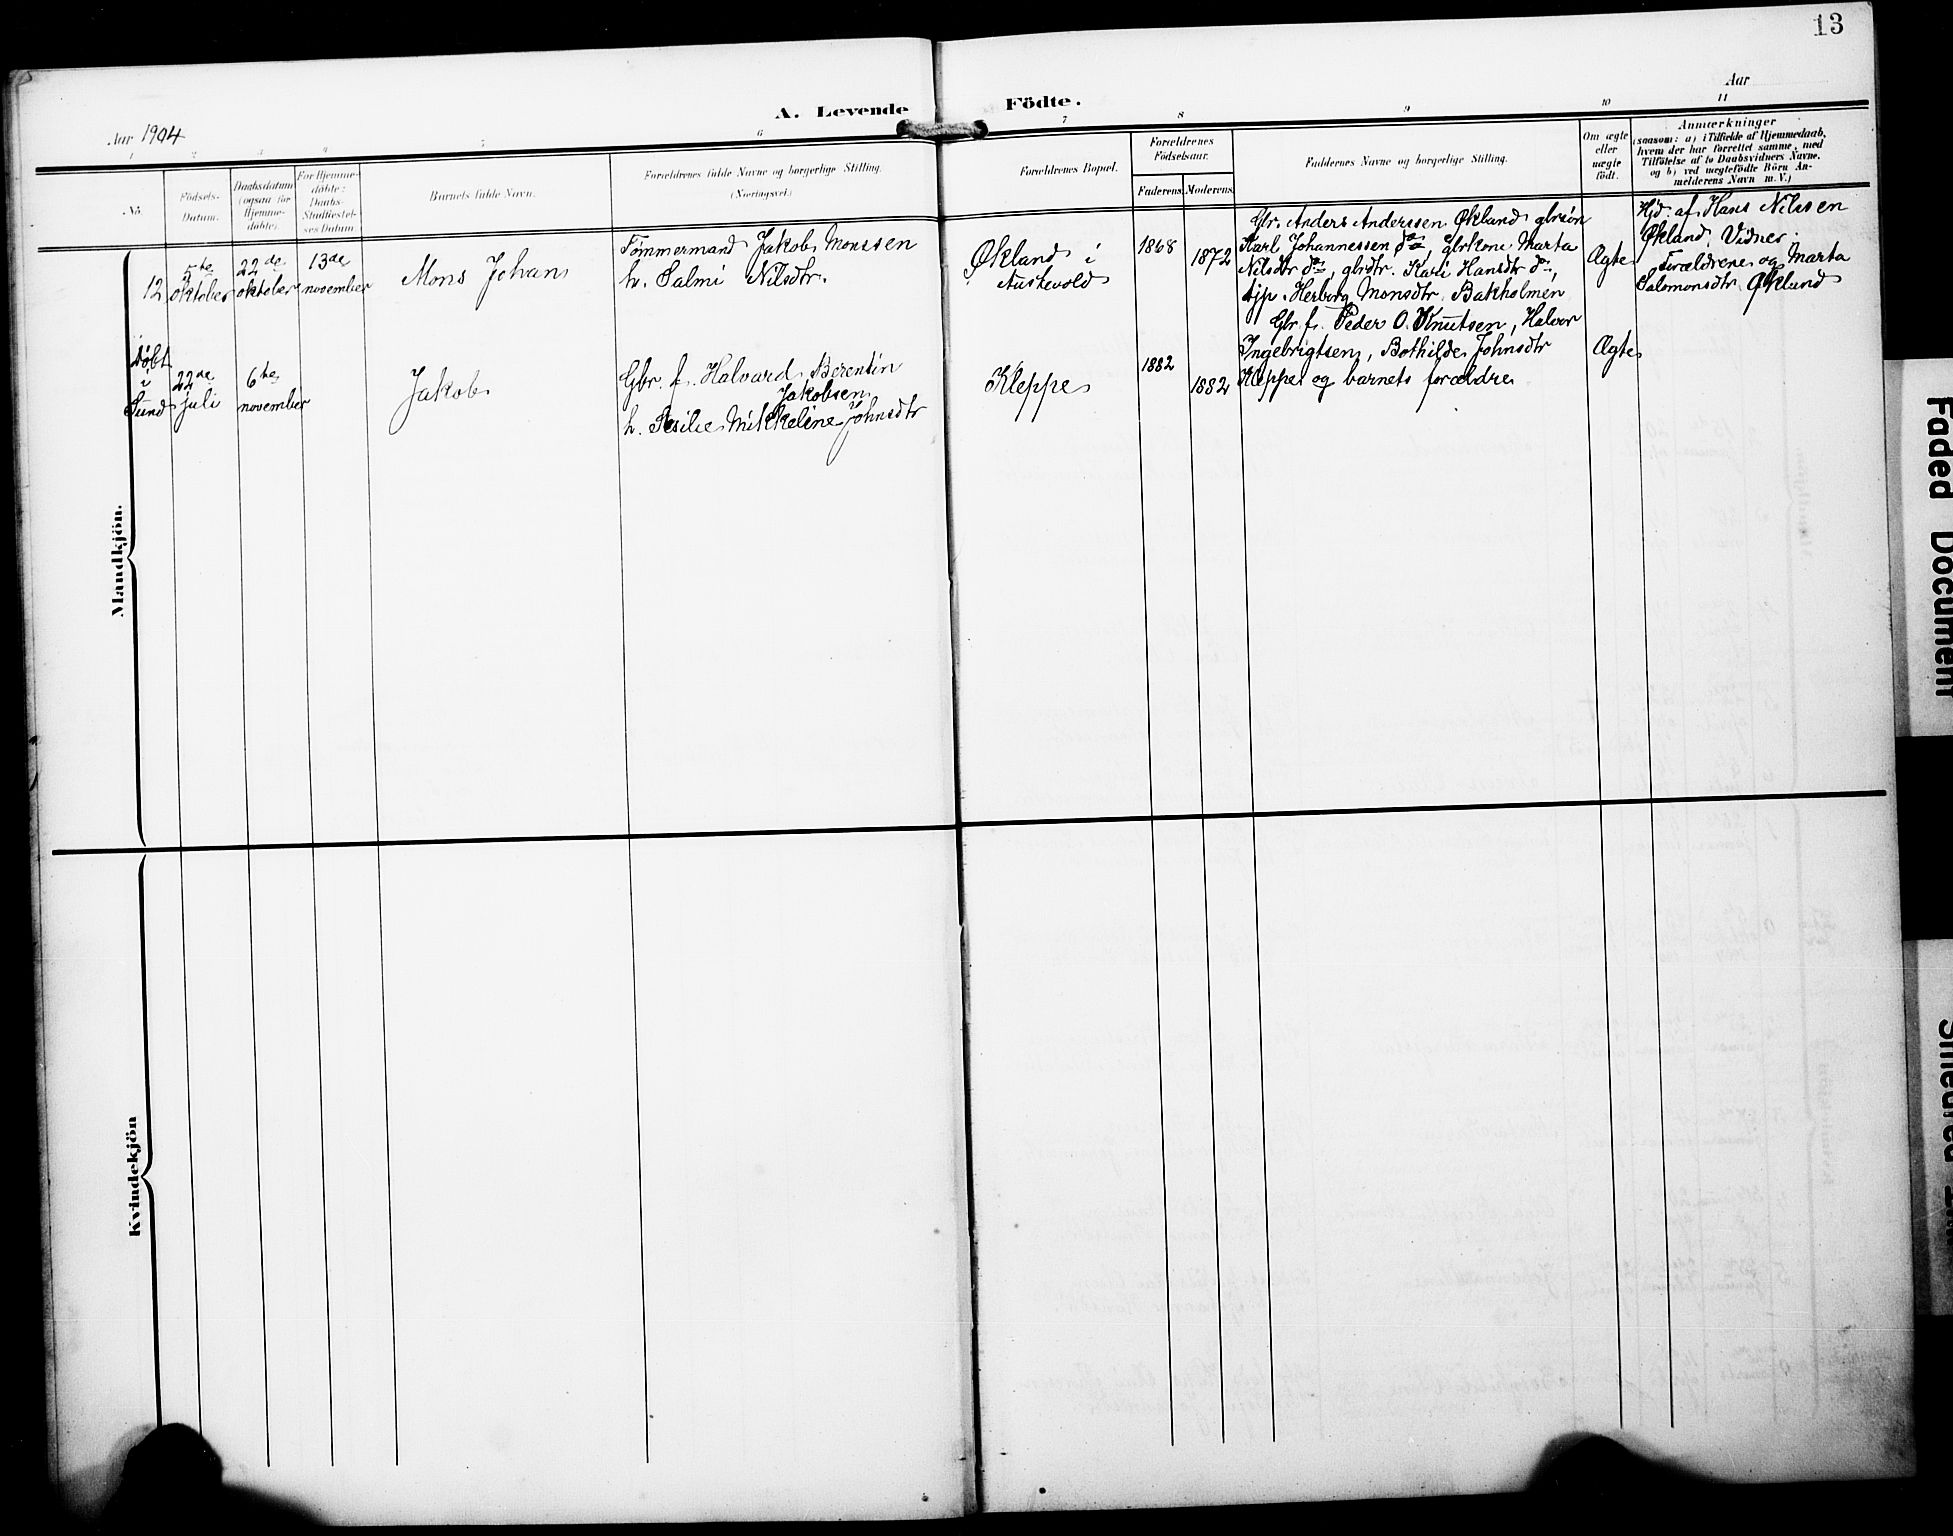 13
A. Levende Födte.
Aar 1904
Aar
1 2 3 4 5 6 7 8 9 10 11
No.
Födsels-
Datum.
Daabsdatum
(ogsaa for
Hjemme-
döbte).
For Hjemme-
döbte:
Daabs-
Stadfæstel-
ses Datum
Barnets fulde Navn.
Forældrenes fulde Navne og borgerlige Stilling.
(Næringsvei.)
Forældrenes Bopæl.
Forældrenes
Födselsaar.
Faderens. Moderens.
Faddernes Navne og borgerlige Stilling.
Om ægte
eller
uægte
födt.
Anmærkninger
(saasom: a) i Tilfælde af Hjemmedaab,
hvem der har forrettet samme, med
Tilföielse af to Daabsvidners Navne.
og b) ved uægtefödte Börn An-
melderens Navn m. V.)
Mandkjön.
12
5te
oktober
22de
oktober
13de
november
Mons Johan
Tømmermand Jakob Monssen
h. Salmi Nilsdtr.
Økland i
Austevold
1868
1872
Gbr. Anders Anderssen Økland gbrsön
Karl Johannessen do, gbrkone Marta
Nilsdtr do, gbrdtr. Kari Hansdtr do,
tjp. Herborg Monsdtr. Bakholmen
Ægte
Hjd. af Hans Nilssen
Økland. Vidner:
Forældrene og Marta
Salomonsdtr. Økland
Döbt
i
Sund
22de
juli
6te
november
Jakob
Gbr. f. Halvard Berentin
Jakobsen
h. Sesilie Mikkeline Johnsdtr
Kleppe
1882
1882
Gbr. f. Peder O. Knutsen, Halvor
Ingebrigtsen, Bothilde Johnsdtr
Kleppe og barnets forældre
Ægte
Kvindekjön
Faded Document
Smeared